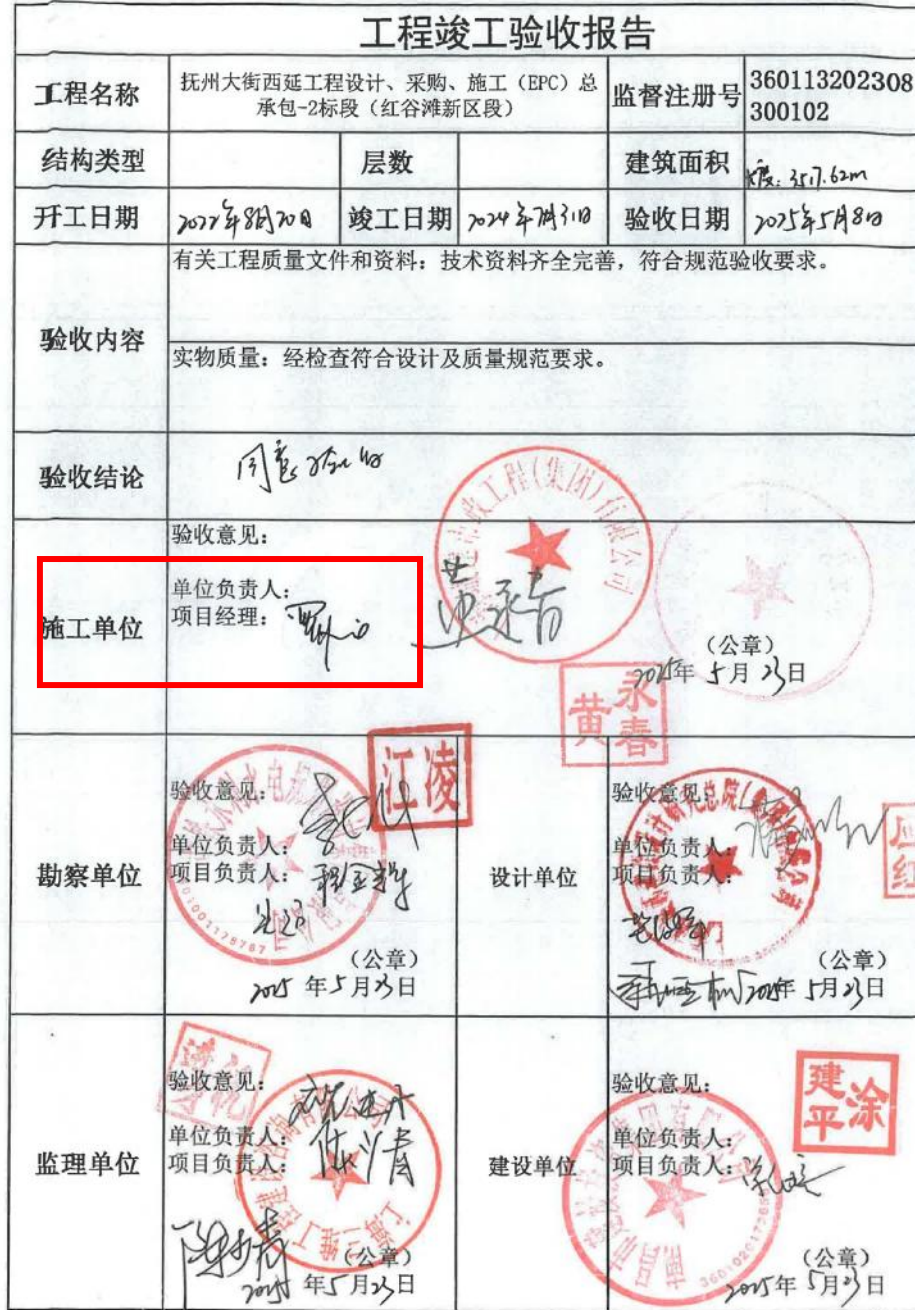 工程竣工验收报告
工程名称
抚州大街西延工程设计、采购、施工（EPC）总
承包-2标段（红谷滩新区段）
监督注册号
360113202308
300102
结构类型
层数
建筑面积
长度：3517.62m
开工日期
2022年8月20日
竣工日期
2024年7月31日
验收日期
2025年5月8日
验收内容
有关工程质量文件和资料：技术资料齐全完善，符合规范验收要求。
实物质量：经检查符合设计及质量规范要求。
验收结论
同意验收
施工单位
验收意见：
单位负责人：
项目经理：
市政工程(集团)有限公司
（公章）
2025年 5月 23日
黄永春
勘察单位
验收意见：
江凌
单位负责人：
项目负责人：
（公章）
2025 年5月23日
设计单位
验收意见：
单位负责人：
项目负责人：
（公章）
2025年 5月23日
监理单位
验收意见：
单位负责人：
项目负责人：
（公章）
2025 年5月23日
建设单位
验收意见：
涂建平
单位负责人：
项目负责人：
（公章）
2025年 5月23日